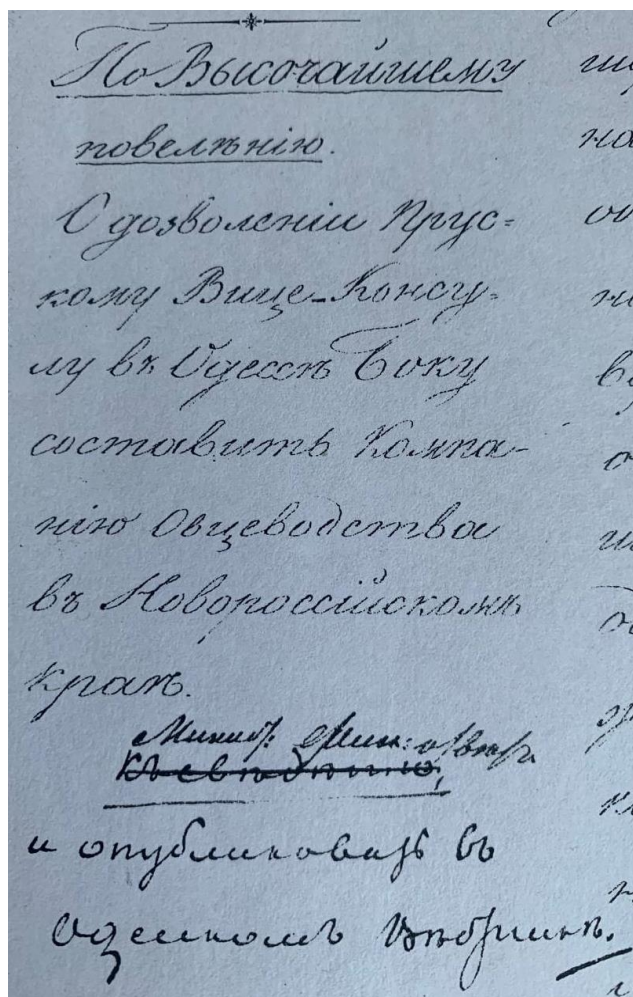 По Высочайшему
повелѣнію.
О дозволеніи Прус=
кому Вице-Консу=
лу въ Одессѣ Боку
составить Компа-
нію Овцеводства
въ Новороссійскомъ
краѣ.
Минист: Фин:
къ свѣдѣнію,
и опубликовать въ
Одесскомъ Вѣстникѣ.